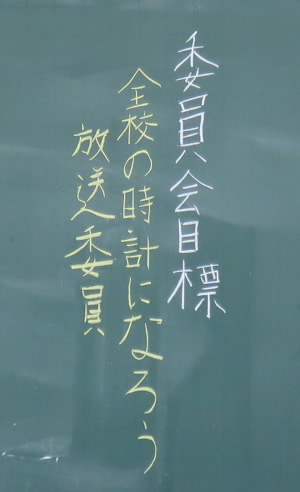 委員会目標
全校の時計になろう
放送委員